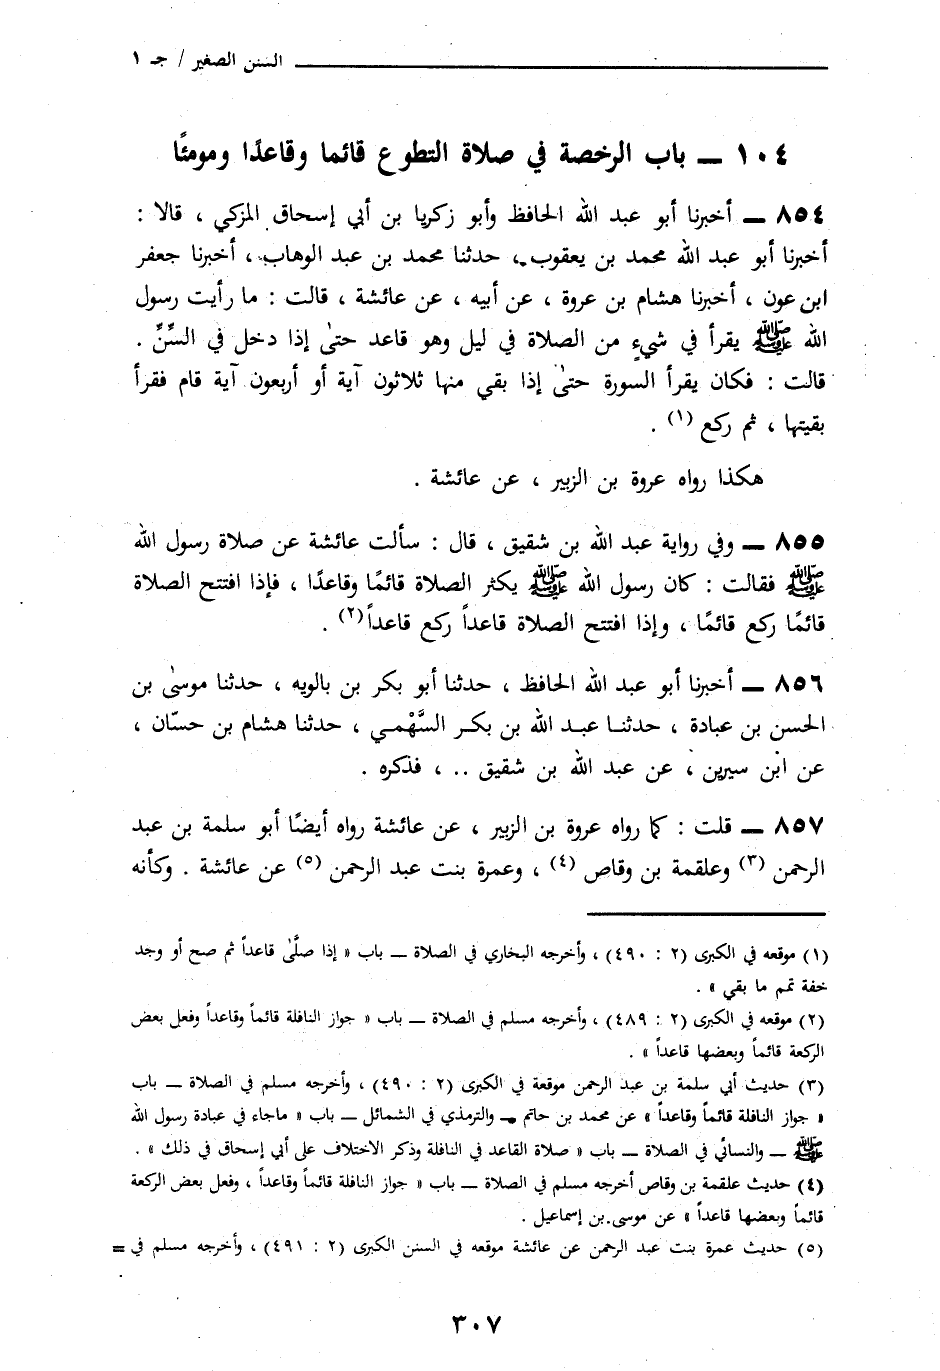 السنن الصغير / جـ ١
١٠٤ ــ باب الرخصة في صلاة التطوع قائما وقاعدًا ومومئًا
٨٥٤ ــ أخبرنا أبو عبد الله الحافظ وأبو زكريا بن أبي إسحاق المزكي ، قالا :
أخبرنا أبو عبد الله محمد بن يعقوب ، حدثنا محمد بن عبد الوهاب ، أخبرنا جعفر
ابن عون ، أخبرنا هشام بن عروة ، عن أبيه ، عن عائشة ، قالت : ما رأيت رسول
الله ﷺ يقرأ في شيءٍ من الصلاة في ليل وهو قاعد حتىٰ إذا دخل في السِّنِّ .
قالت : فكان يقرأ السورة حتىٰ إذا بقي منها ثلاثون آية أو أربعون آية قام فقرأ
بقيتها ، ثم ركع (١) .
هكذا رواه عروة بن الزبير ، عن عائشة .
٨٥٥ ــ وفي رواية عبد الله بن شقيق ، قال : سألت عائشة عن صلاة رسول الله
ﷺ فقالت : كان رسول الله ﷺ يكثر الصلاة قائمًا وقاعدًا ، فإذا افتتح الصلاة
قائمًا ركع قائمًا ، وإذا افتتح الصلاة قاعداً ركع قاعداً(٢) .
٨٥٦ ــ أخبرنا أبو عبد الله الحافظ ، حدثنا أبو بكر بن بالويه ، حدثنا موسىٰ بن
الحسن بن عبادة ، حدثنـا عبـد الله بن بكـر السَّهْمـي ، حدثنا هشام بن حسّان ،
عن ابن سيرين ، عن عبد الله بن شقيق .. ، فذكره .
٨٥٧ ــ قلت : كما رواه عروة بن الزبير ، عن عائشة رواه أيضًا أبو سلمة بن عبد
الرحمن (٣) وعلقمة بن وقاص (٤) ، وعمرة بنت عبد الرحمن (٥) عن عائشة . وكأنه
(١) موقعه في الكبرى (٢ : ٤٩٠) ، وأخرجه البخاري في الصلاة ــ باب « إذا صلَّىٰ قاعداً ثم صح أو وجد
خفة تمم ما بقي » .
(٢) موقعه في الكبرى (٢ : ٤٨٩) ، وأخرجه مسلم في الصلاة ــ باب « جواز النافلة قائماً وقاعداً وفعل بعض
الركعة قائماً وبعضها قاعداً » .
(٣) حديث أبي سلمة بن عبد الرحمن موقعة في الكبرى (٢ : ٤٩٠) ، وأخرجه مسلم في الصلاة ــ باب
« جواز النافلة قائماً وقاعداً » عن محمد بن حاتم ــ والترمذي في الشمائل ــ باب « ماجاء في عبادة رسول الله
ﷺ ــ والنسائي في الصلاة ــ باب « صلاة القاعد في النافلة وذكر الاختلاف على أبي إسحاق في ذلك » .
(٤) حديث علقمة بن وقاص أخرجه مسلم في الصلاة ــ باب « جواز النافلة قائماً وقاعداً ، وفعل بعض الركعة
قائماً وبعضها قاعداً » عن موسى بن إسماعيل .
(٥) حديث عمرة بنت عبد الرحمن عن عائشة موقعه في السنن الكبرى (٢ : ٤٩١) ، وأخرجه مسلم في =
٣٠٧